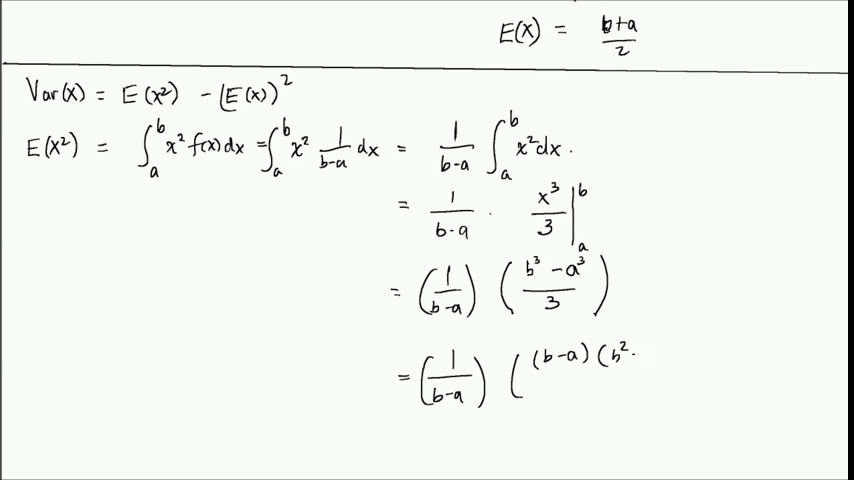 E(X) = b+a/2
Var(X) = E(X²) - (E(X))²
E(X²) = ∫ₐᵇ x² f(x) dx = ∫ₐᵇ x² 1/(b-a) dx = 1/(b-a) ∫ₐᵇ x² dx.
= 1/(b-a) · x³/3 |ₐᵇ
= (1/(b-a)) ((b³ - a³)/3)
= (1/(b-a)) ( (b-a) (b² ·